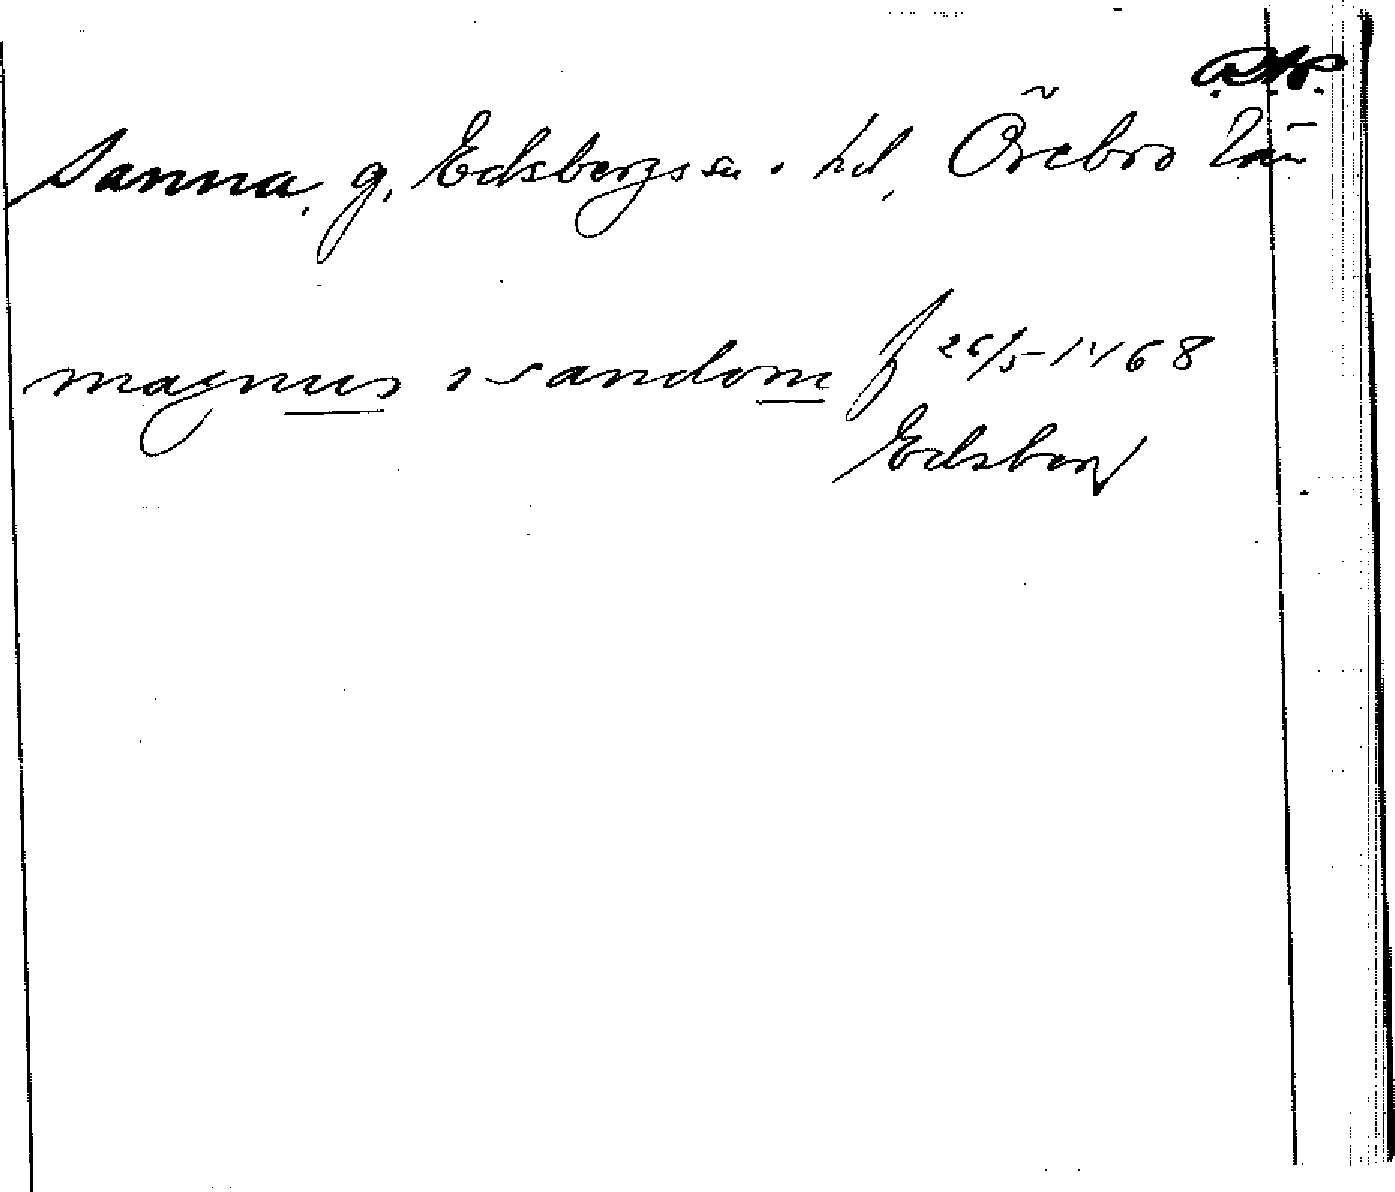 Sanna, g, Edsbergs sn · hd, Örebro län
magnus Wandom f 26/5-1768
Edsberg